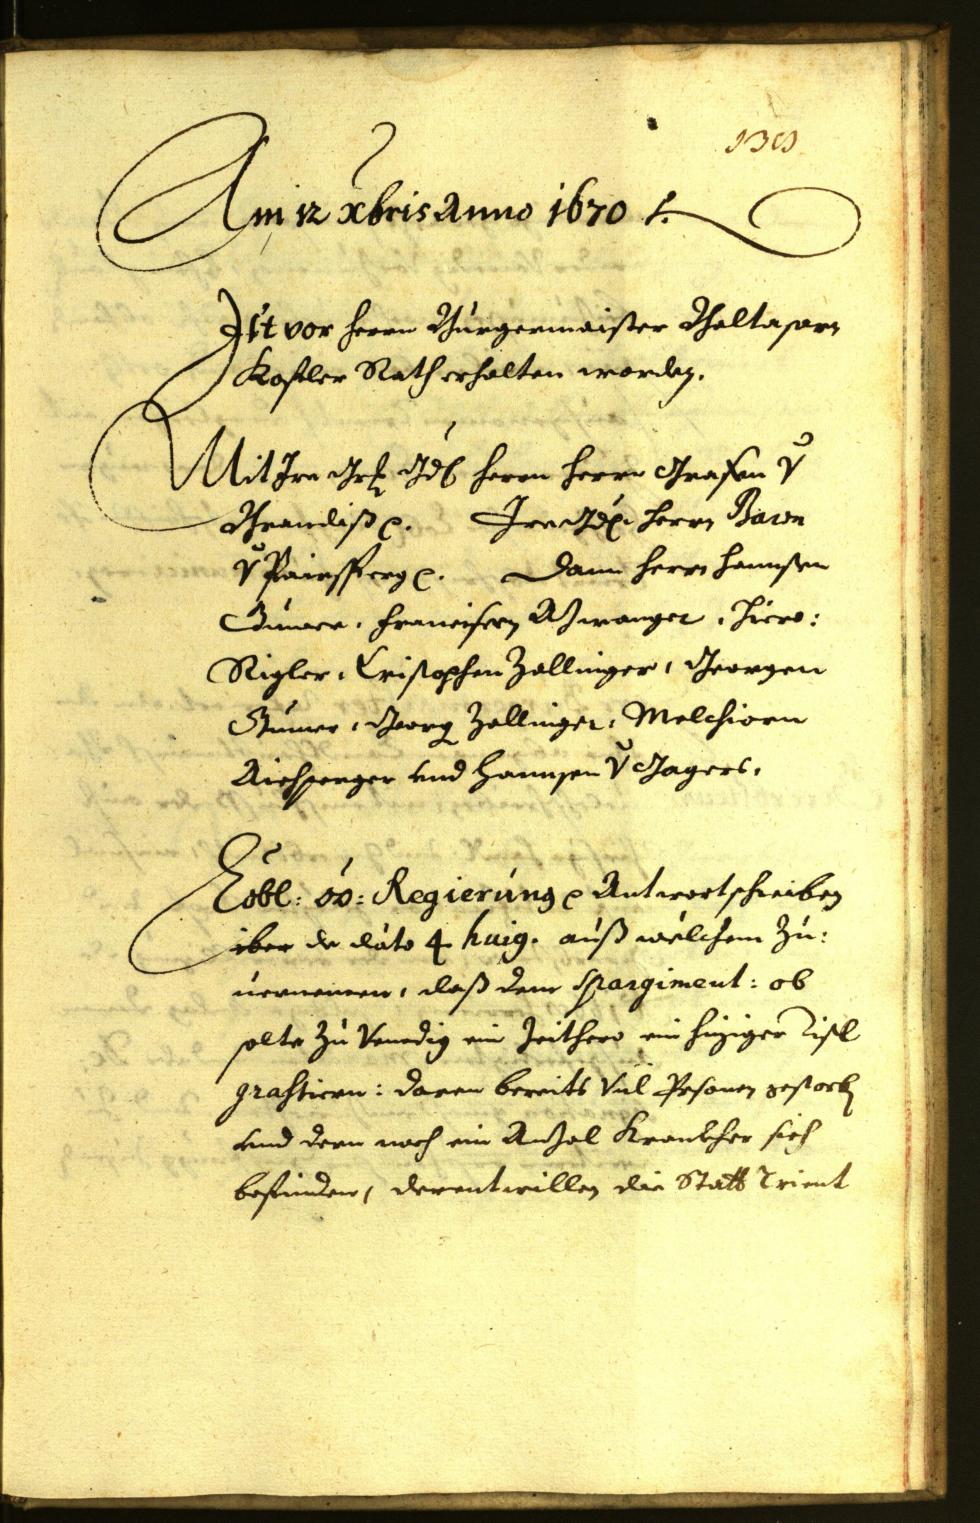 130
Am 12 Xbris Anno 1670 /.
Ist vor Herrn Burgermaister Balthasarn
Kofler Rath erhalten worden.
Mit Irn Grf. Gd. Herrn Herrn Grafen V
Brandiß p. Irn Gd. Herrn Baron
V Pairsperg p. Dann Herrn Hannsen
Gumer, Francisen Azwanger, Hiero:
Rigler, Cristophen Zallinger, Georgen
Gumer, Georg Zallinger, Melchiorn
Aichperger und Hannsen V Jagers.
Lobl: öö: Regierung p Antwortschreiben
iber de dato 4 huig. auß welchem zu:
vernemen, daß dem Spargiment: ob
solte zu Venedig ein Zeithero ein hiziger
grassiern: daran bereits vil Persohnen gestorben
und dern noch ein Anzal Krankher sich
befinden, derentwillen die Statt Trient